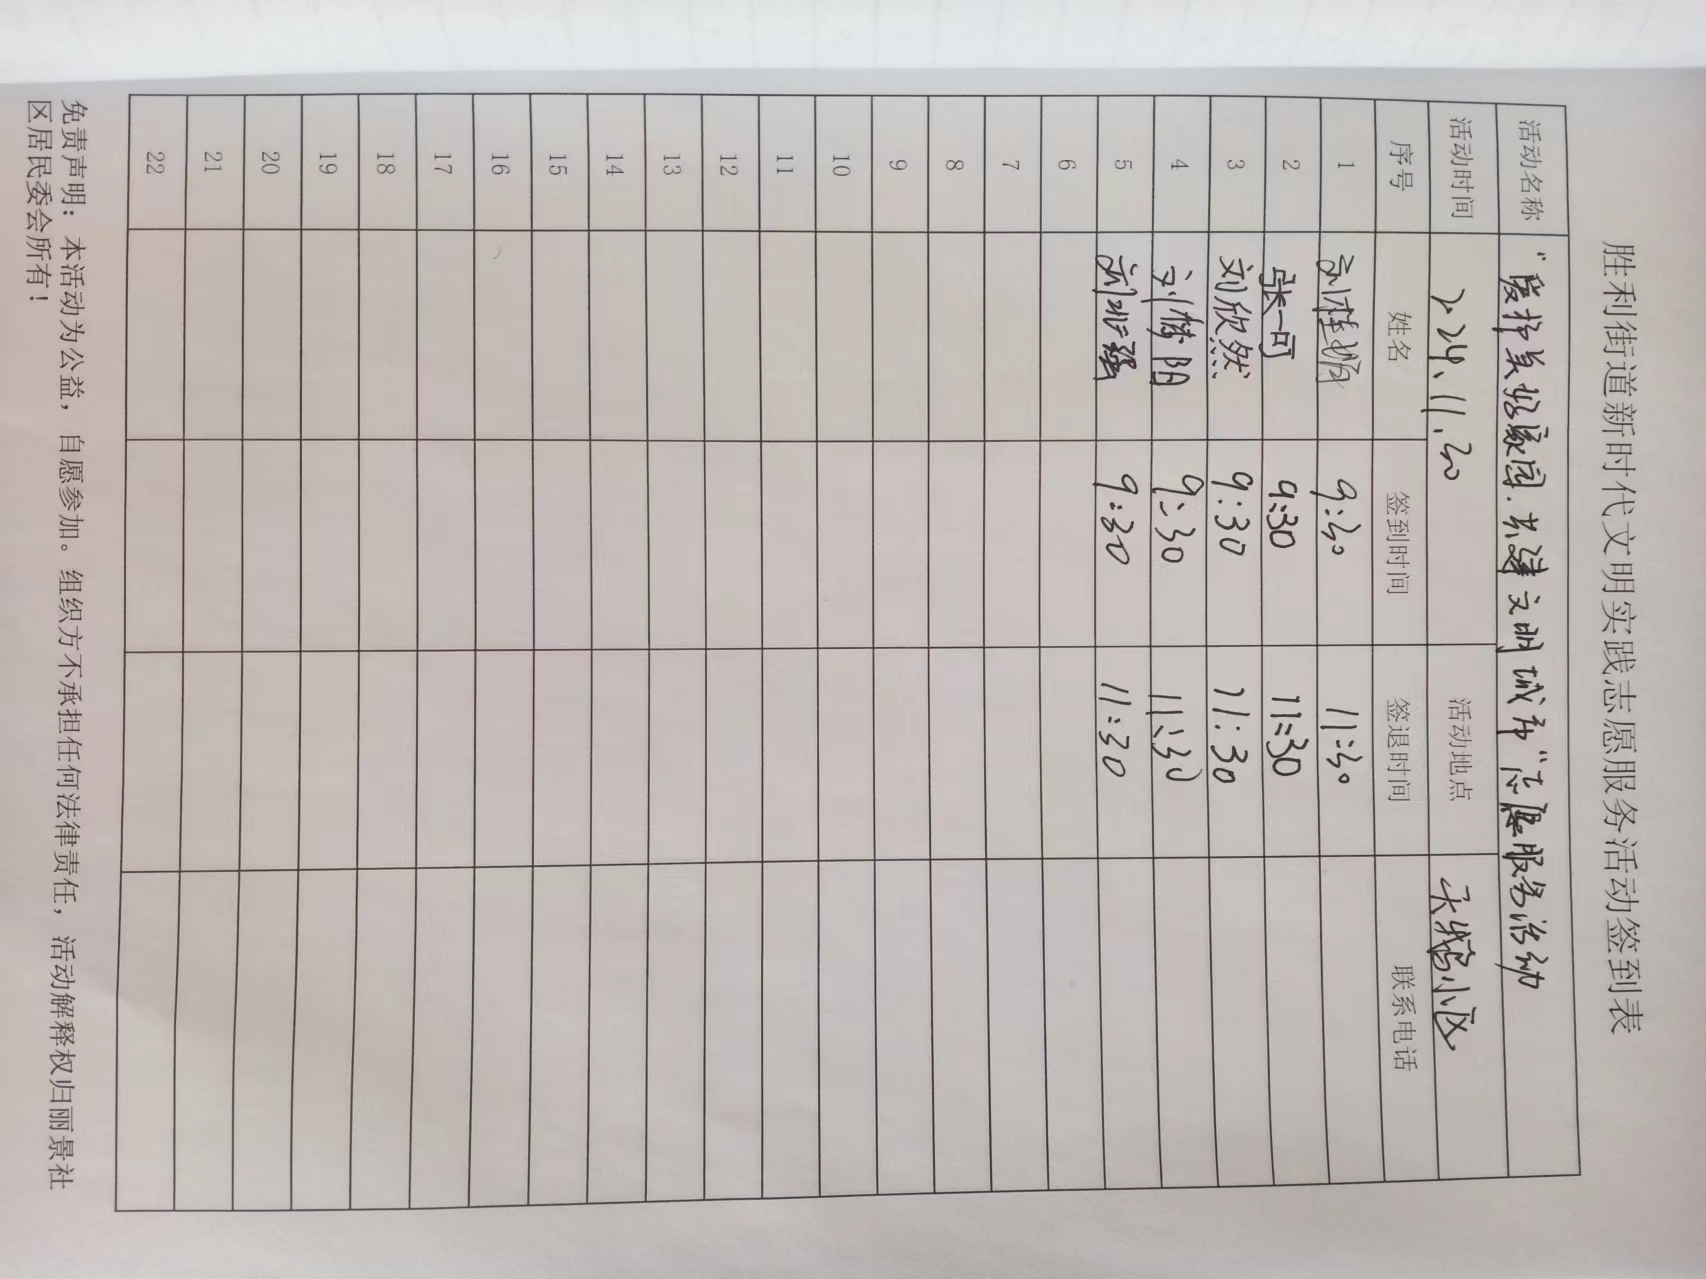 胜利街道新时代文明实践志愿服务活动签到表
活动名称 "爱护美好家园.共建文明城市"志愿服务活动
活动时间 224.11.30 活动地点 天鹅小区
序号 姓名 签到时间 签退时间 联系电话
1 刘桂娟 9:30 11:30
2 张一可 9:30 11:30
3 刘欣然 9:30 11:30
4 刘 阳 9:30 11:30
5 9:30 11:30
6
7
8
9
10
11
12
13
14
15
16
17
18
19
20
21
22
免责声明：本活动为公益，自愿参加。组织方不承担任何法律责任，活动解释权归丽景社
区居民委会所有！